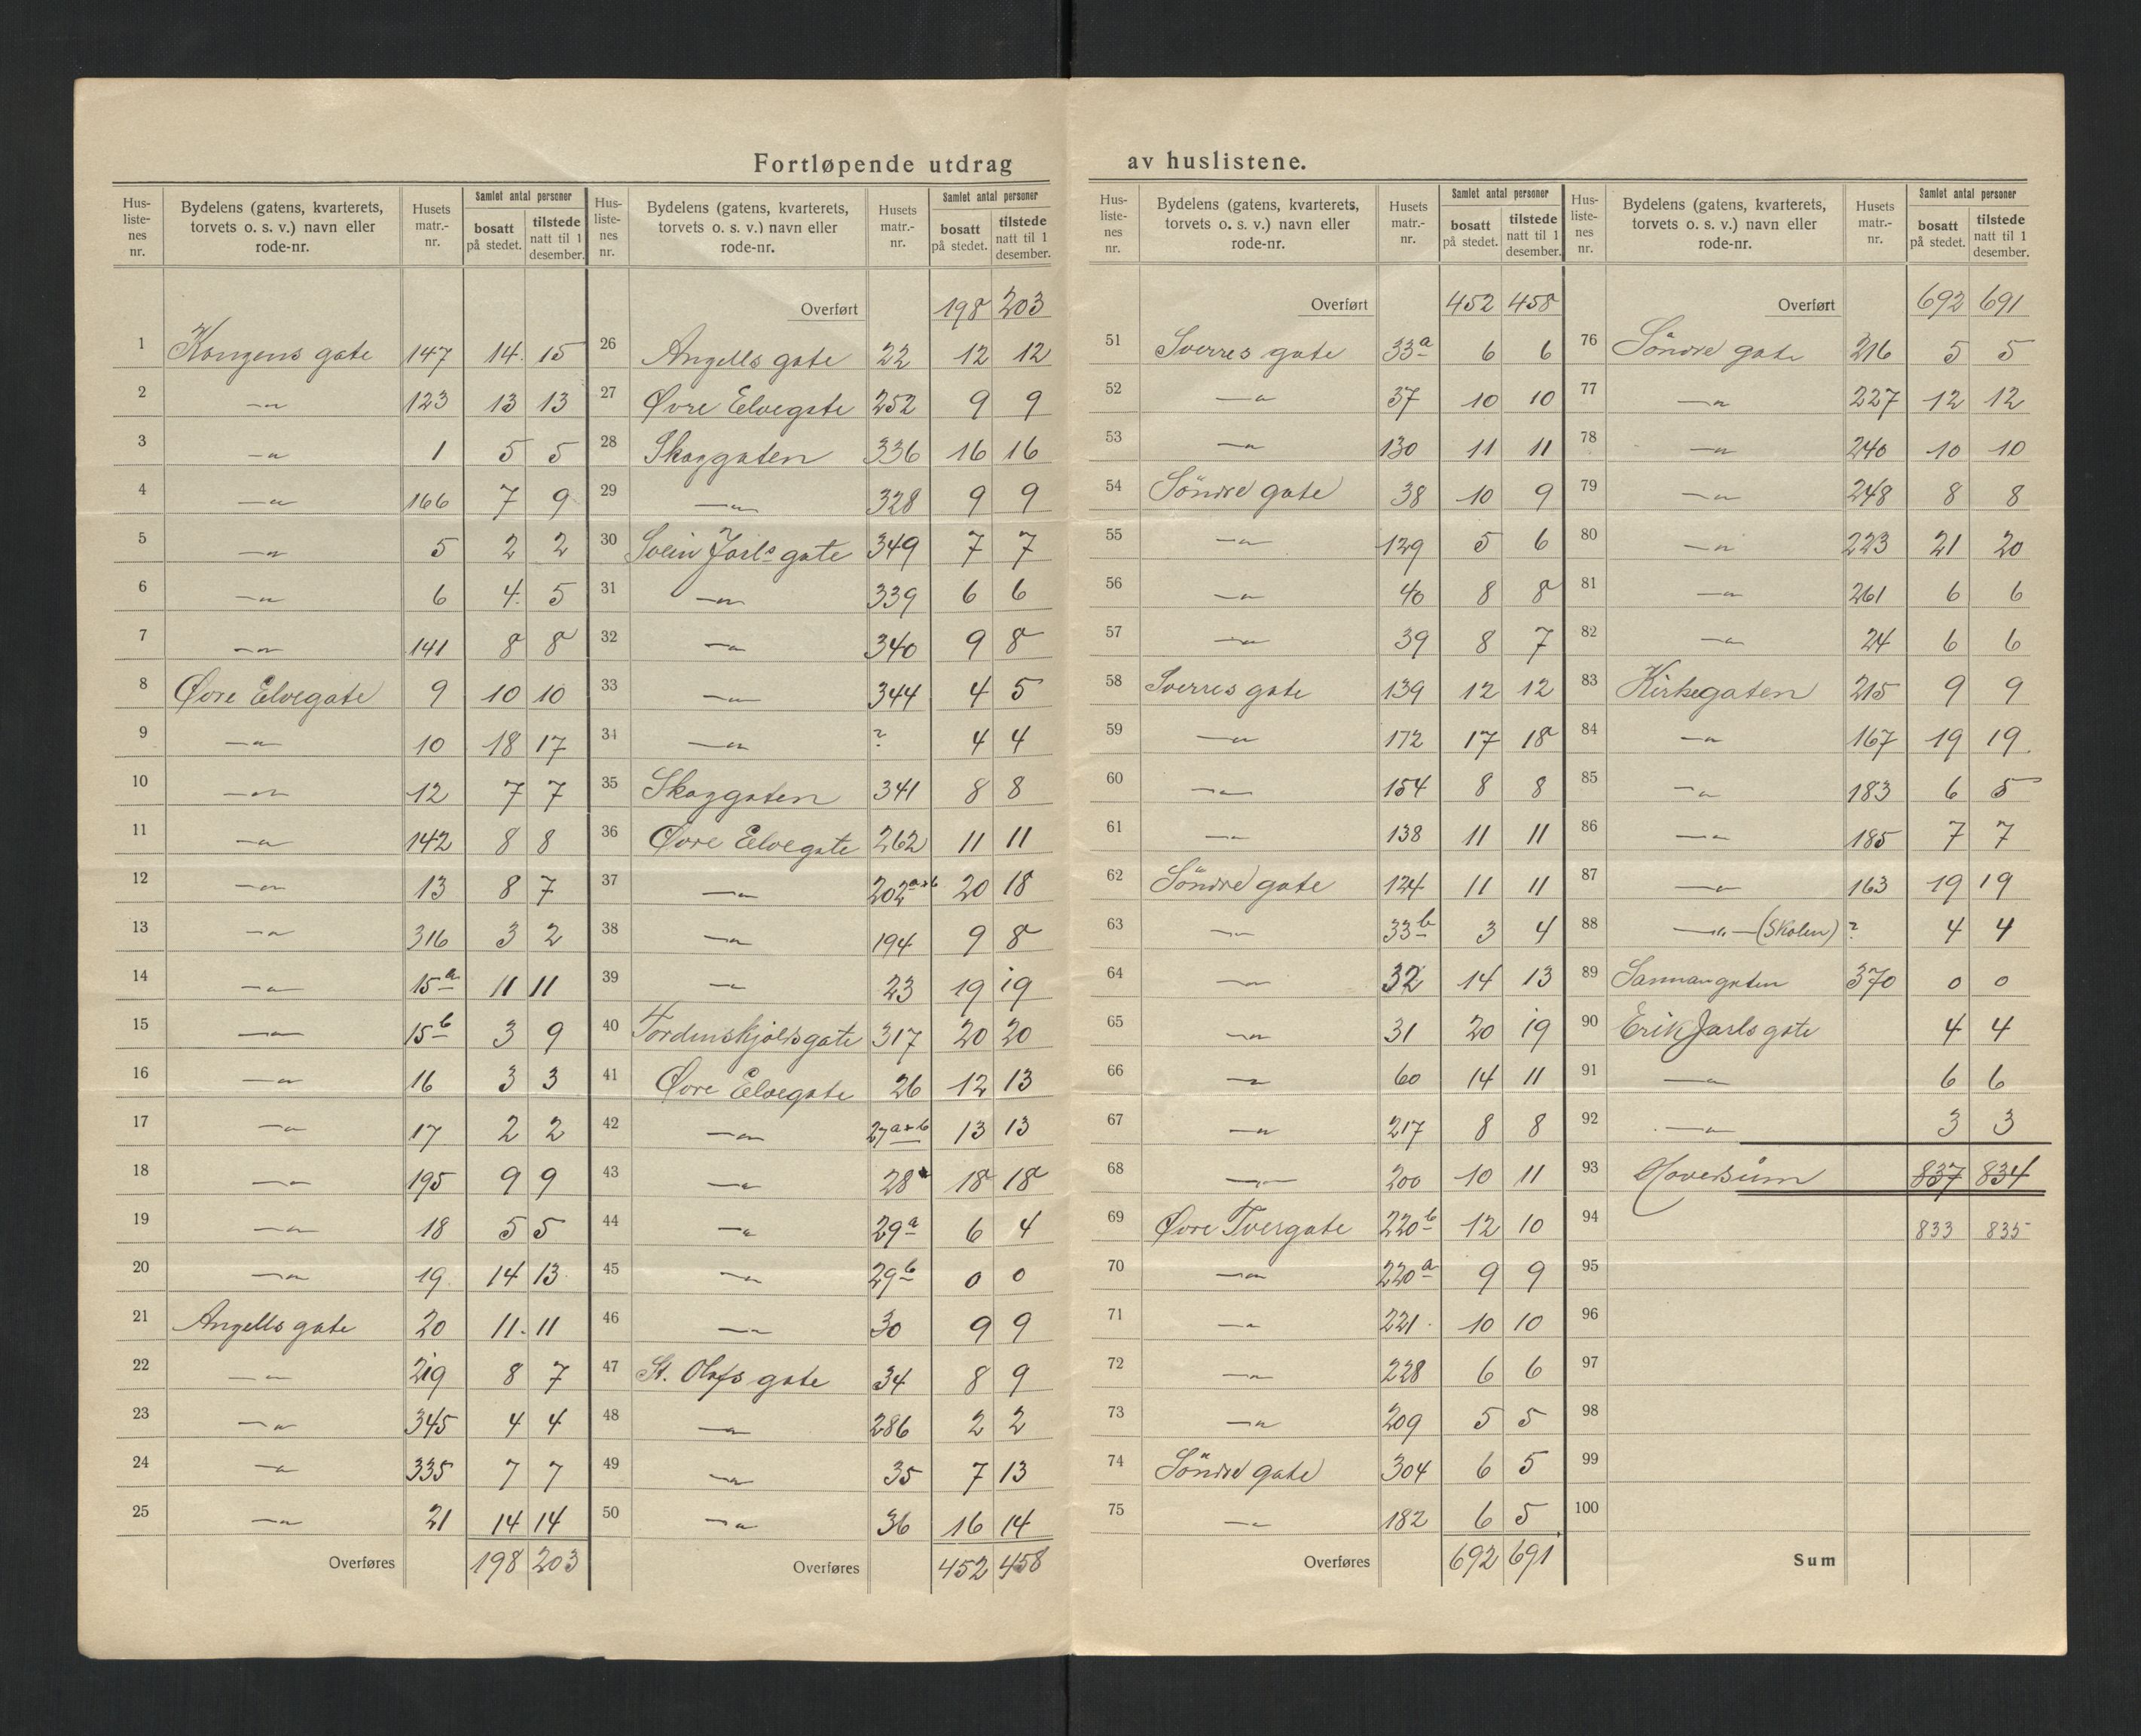 Fortløpende utdrag av huslistene.
Hus-liste-nes nr. | Bydelens (gatens, kvarterets, torvets o. s. v.) navn eller rode-nr. | Husets matr.-nr. | Samlet antal personer bosatt på stedet. | tilstede natt til 1 desember.
1 Kongens gate 147 14 15
2 —"— 123 13 13
3 —"— 1 5 5
4 —"— 166 7 9
5 —"— 5 2 2
6 —"— 6 4 5
7 —"— 141 8 8
8 Øvre Elvegate 9 10 10
9 —"— 10 18 17
10 —"— 12 7 7
11 —"— 142 8 8
12 —"— 13 8 7
13 —"— 316 3 2
14 —"— 15a 11 11
15 —"— 15b 3 9
16 —"— 16 3 3
17 —"— 17 2 2
18 —"— 195 9 9
19 —"— 18 5 5
20 —"— 19 14 13
21 Angells gate 20 11 11
22 —"— 219 8 7
23 —"— 345 4 4
24 —"— 335 7 7
25 —"— 21 14 14
Overføres 198 203
Hus-liste-nes nr. | Bydelens (gatens, kvarterets, torvets o. s. v.) navn eller rode-nr. | Husets matr.-nr. | Samlet antal personer bosatt på stedet. | tilstede natt til 1 desember.
Overført 198 203
26 Angells gate 22 12 12
27 Øvre Elvegate 252 9 9
28 Skoggaten 336 16 16
29 —"— 328 9 9
30 Svein Jarls gate 349 7 7
31 —"— 339 6 6
32 —"— 340 9 8
33 —"— 344 4 5
34 —"— ? 4 4
35 Skoggaten 341 8 8
36 Øvre Elvegate 262 11 11
37 —"— 202a+b 20 18
38 —"— 194 9 8
39 —"— 23 19 19
40 Tordenskjolds gate 317 20 20
41 Øvre Elvegate 26 12 13
42 —"— 27a+b 13 13
43 —"— 28 18 18
44 —"— 29a 6 4
45 —"— 29b 0 0
46 —"— 30 9 9
47 St. Olafs gate 34 8 9
48 —"— 286 2 2
49 —"— 35 7 13
50 —"— 36 16 14
Overføres 452 458
Hus-liste-nes nr. | Bydelens (gatens, kvarterets, torvets o. s. v.) navn eller rode-nr. | Husets matr.-nr. | Samlet antal personer bosatt på stedet. | tilstede natt til 1 desember.
Overført 452 458
51 Sverres gate 33a 6 6
52 —"— 37 10 10
53 —"— 130 11 11
54 Söndre gate 38 10 9
55 —"— 129 5 6
56 —"— 40 8 8
57 —"— 39 8 7
58 Sverres gate 139 12 12
59 —"— 172 17 18
60 —"— 154 8 8
61 —"— 138 11 11
62 Söndre gate 124 11 11
63 —"— 33b 3 4
64 —"— 32 14 13
65 —"— 31 20 19
66 —"— 60 14 11
67 —"— 217 8 8
68 —"— 200 10 11
69 Øvre Tvergate 220b 12 10
70 —"— 220a 9 9
71 —"— 221 10 10
72 —"— 228 6 6
73 —"— 209 5 5
74 Söndre gate 304 6 5
75 —"— 182 6 5
Overføres 692 691
Hus-liste-nes nr. | Bydelens (gatens, kvarterets, torvets o. s. v.) navn eller rode-nr. | Husets matr.-nr. | Samlet antal personer bosatt på stedet. | tilstede natt til 1 desember.
Overført 692 691
76 Söndre gate 216 5 5
77 —"— 227 12 12
78 —"— 240 10 10
79 —"— 248 8 8
80 —"— 223 21 20
81 —"— 261 6 6
82 —"— 24 6 6
83 Kirkegaten 215 9 9
84 —"— 167 19 19
85 —"— 183 6 5
86 —"— 185 7 7
87 —"— 163 19 19
88 —"— (Skolen) ? 4 4
89 Sannangaten 370 0 0
90 Erik Jarls gate 4 4
91 —"— 6 6
92 —"— 3 3
93 Hovedsum 837 834
94 833 835
95
96
97
98
99
100
Sum